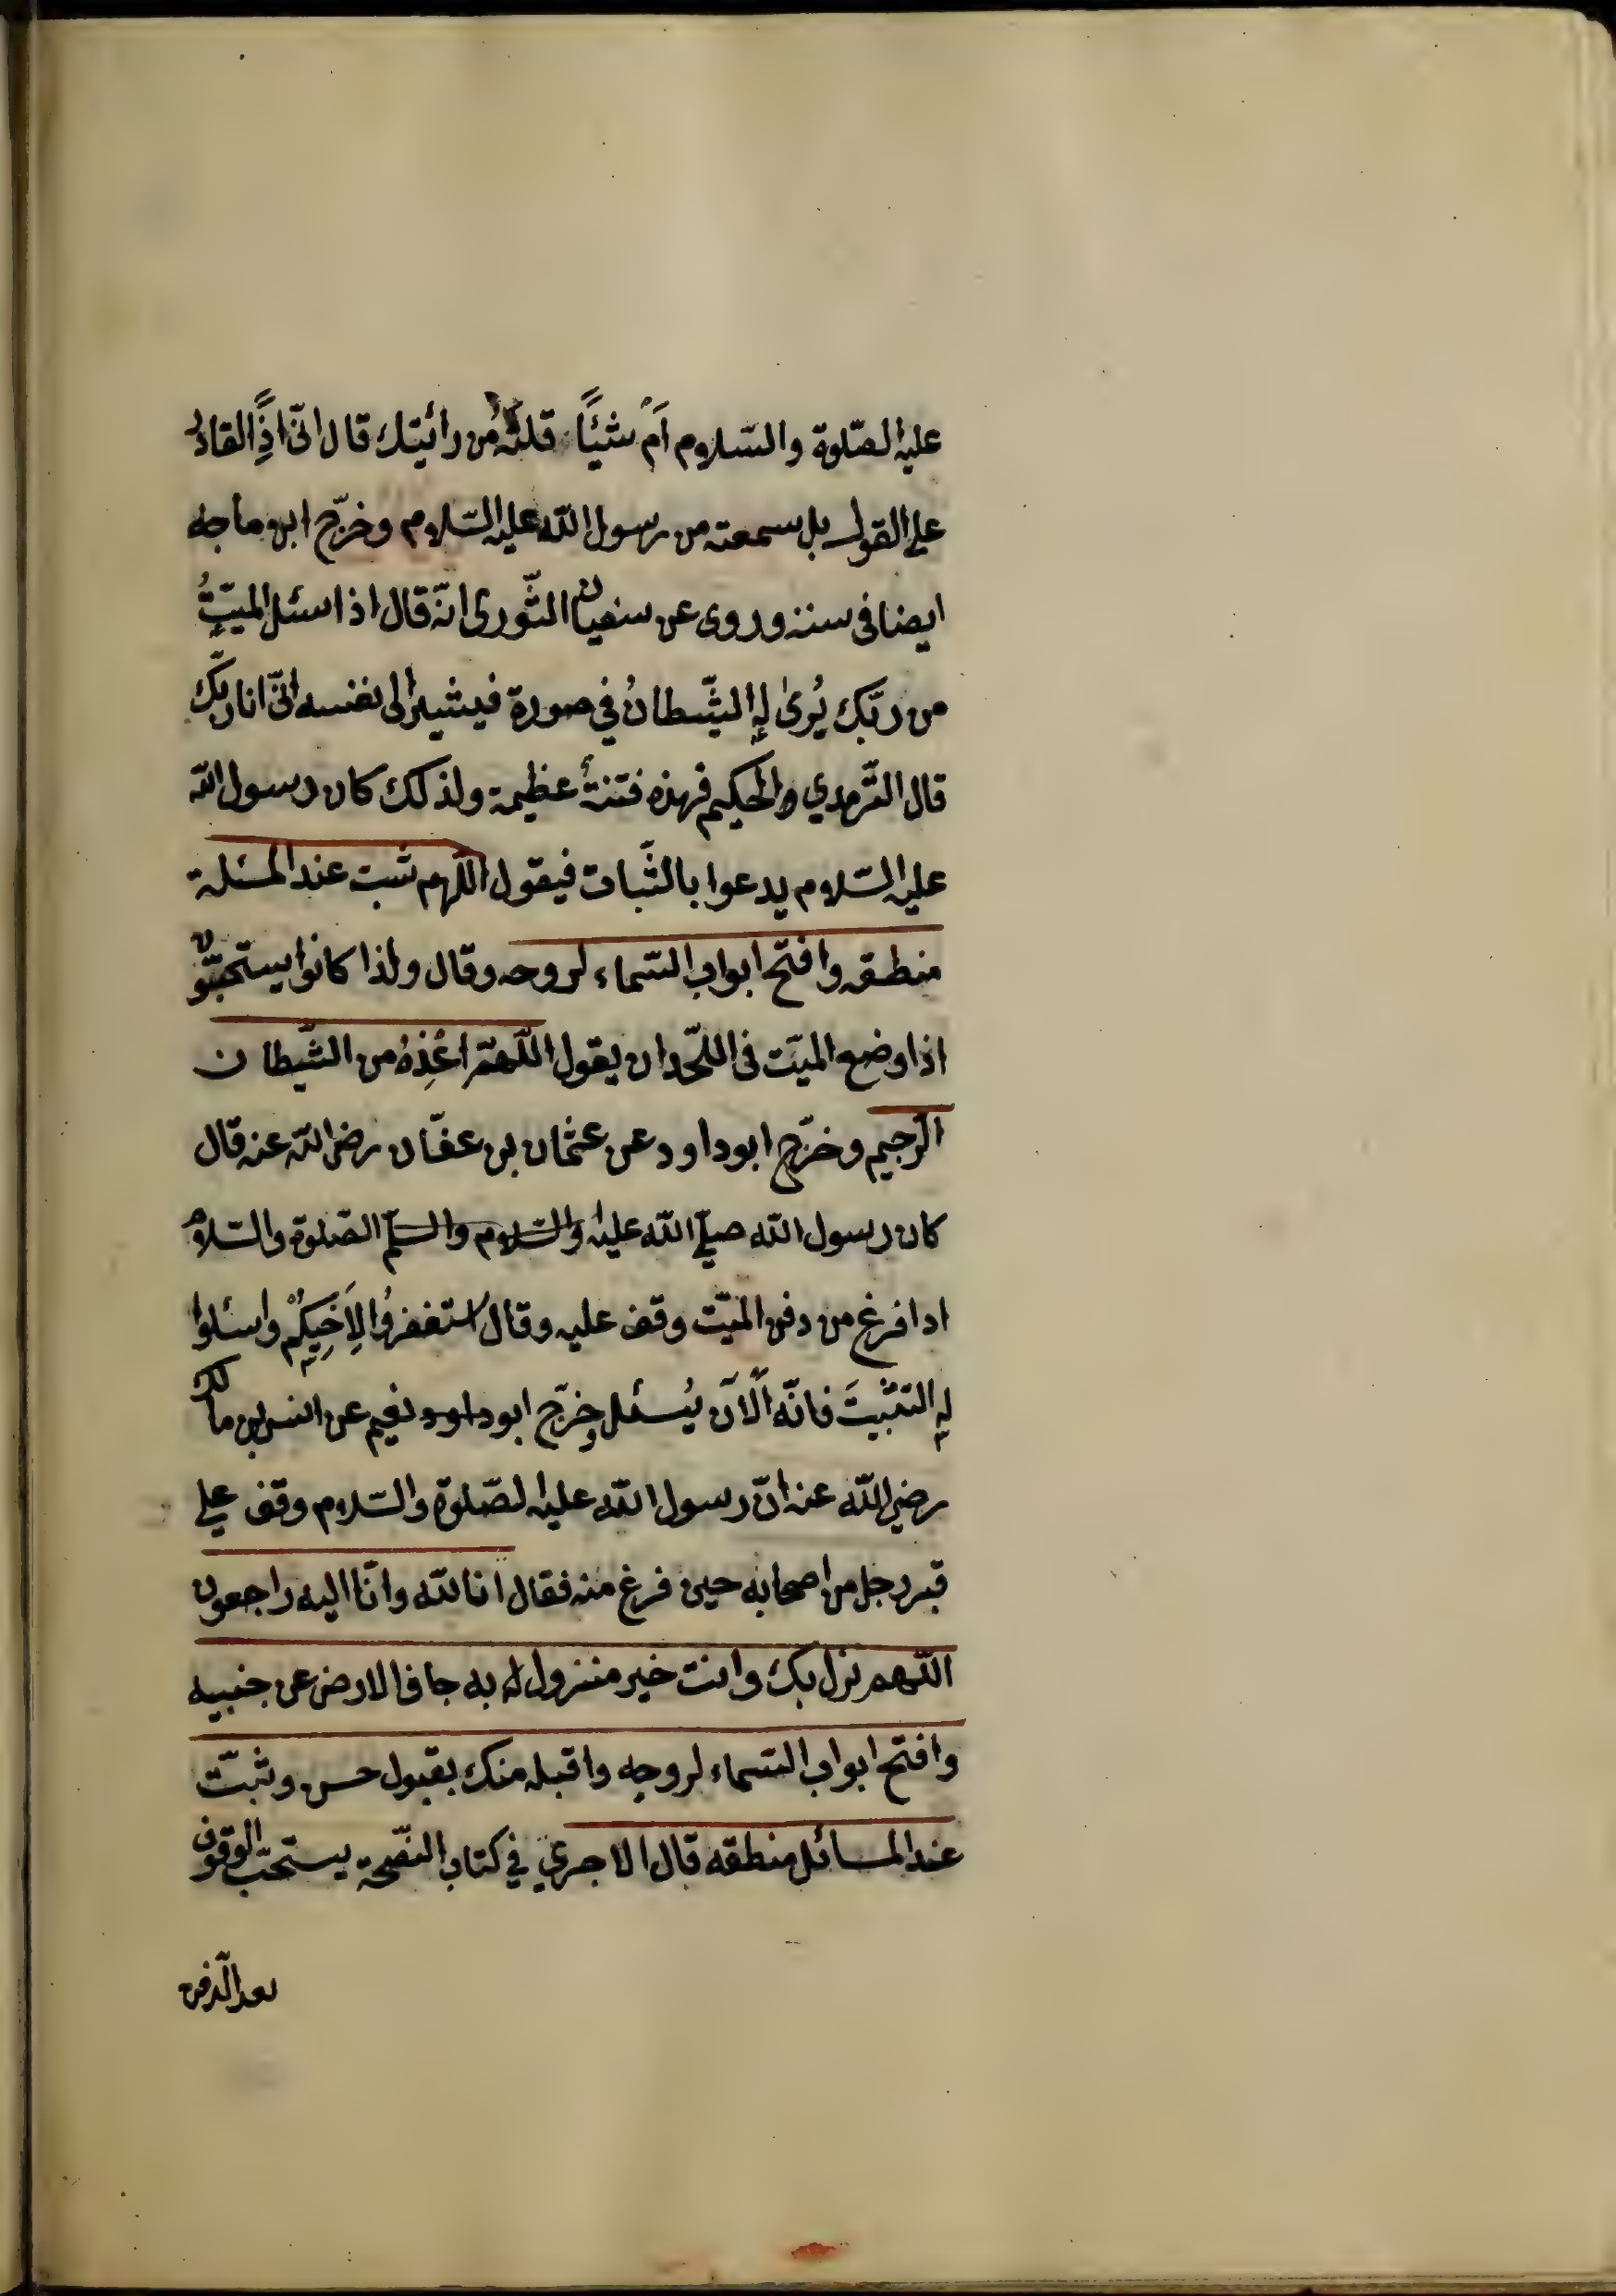 عليه الصّلوة والسّلام اَمْ شيْئًا قلتَهُ من رائيتك قال انّى اذًا لقادرٌ
على القول بل سمعته من رسول اللّه عليه السّلام وخرّج ابن ماجه
ايضا فى سننه وروى عن سفيان الثّورى انّه قال اذا سئل الميّتُ
من ربّك يُرىٰ لهِ الشّيطانُ في صورة فيشير الى نفسه انّى انا ربّك
قال التّرمدي والحكيم فهذه فتنةٌ عظيمة ولذلك كان رسول اللّه
عليه السّلام يدعوا بالثّبات فيقول اللّهم ثبت عند المسئلة
منطقه وافتح ابواب السّماء لروحه وقال ولذا كانوا يستحبّون
اذا وضع الميّت فى اللّحد ان يقول اللّهمّ اعُذِهُ من الشّيطان
الرّجيم وخرّج ابو داود عن عثمان بن عفّان رضى اللّه عنه قال
كان رسول اللّه صلّى اللّه عليه والسّلام والسلّم الصّلوة والسّلامُ
ادا فرغ من دفن الميّت وقف عليه وقال استغفرُوا لِاَخِيكِمْ واسئلوا
لهِ التّثبيتَ فانّه الْاَن يُسئل وخرّج ابو داود نعيم عن انس بن مالك
رضي اللّه عنه انّ رسول اللّه عليه الصّلوة والسّلام وقف على
قبر رجل من اصحابه حين فرغ منه فقال انا للّه وانّا اليه راجعون
اللّهم نزل بك وانت خير منزول له به جاف الارض عن جنبيه
وافتح ابواب السّماء لروحِه واقبله منك بقبول حسن وثبّت
عند المسائل منطقه قال الاجري في كتاب النّصيحة يستحبّ الوقوف
بعد الدّفن